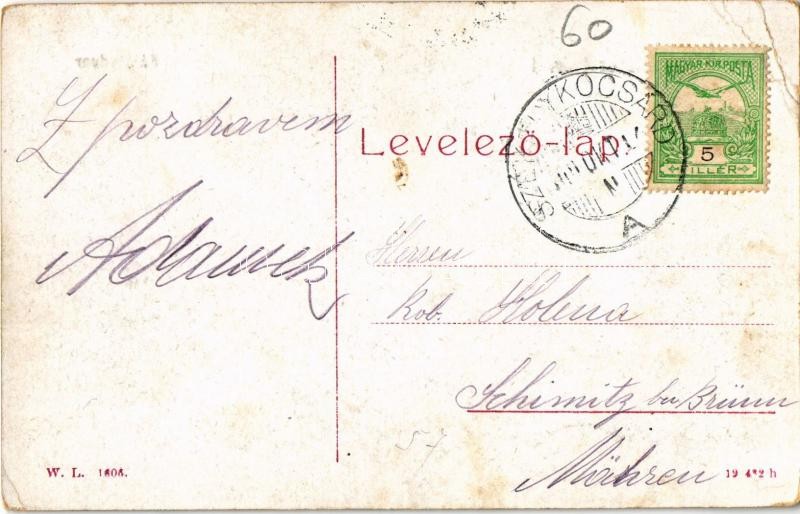 60
MAGYAR KIR. POSTA
5
FILLÉR
SZÉKELYKOCSÁRD
A
Levelező-lap.
Z pozdravem
Adamek
Herrn
Rob. Kolena
Schimitz bei Brünn
Mähren
57
W. L. 1606.
19 4*2 h